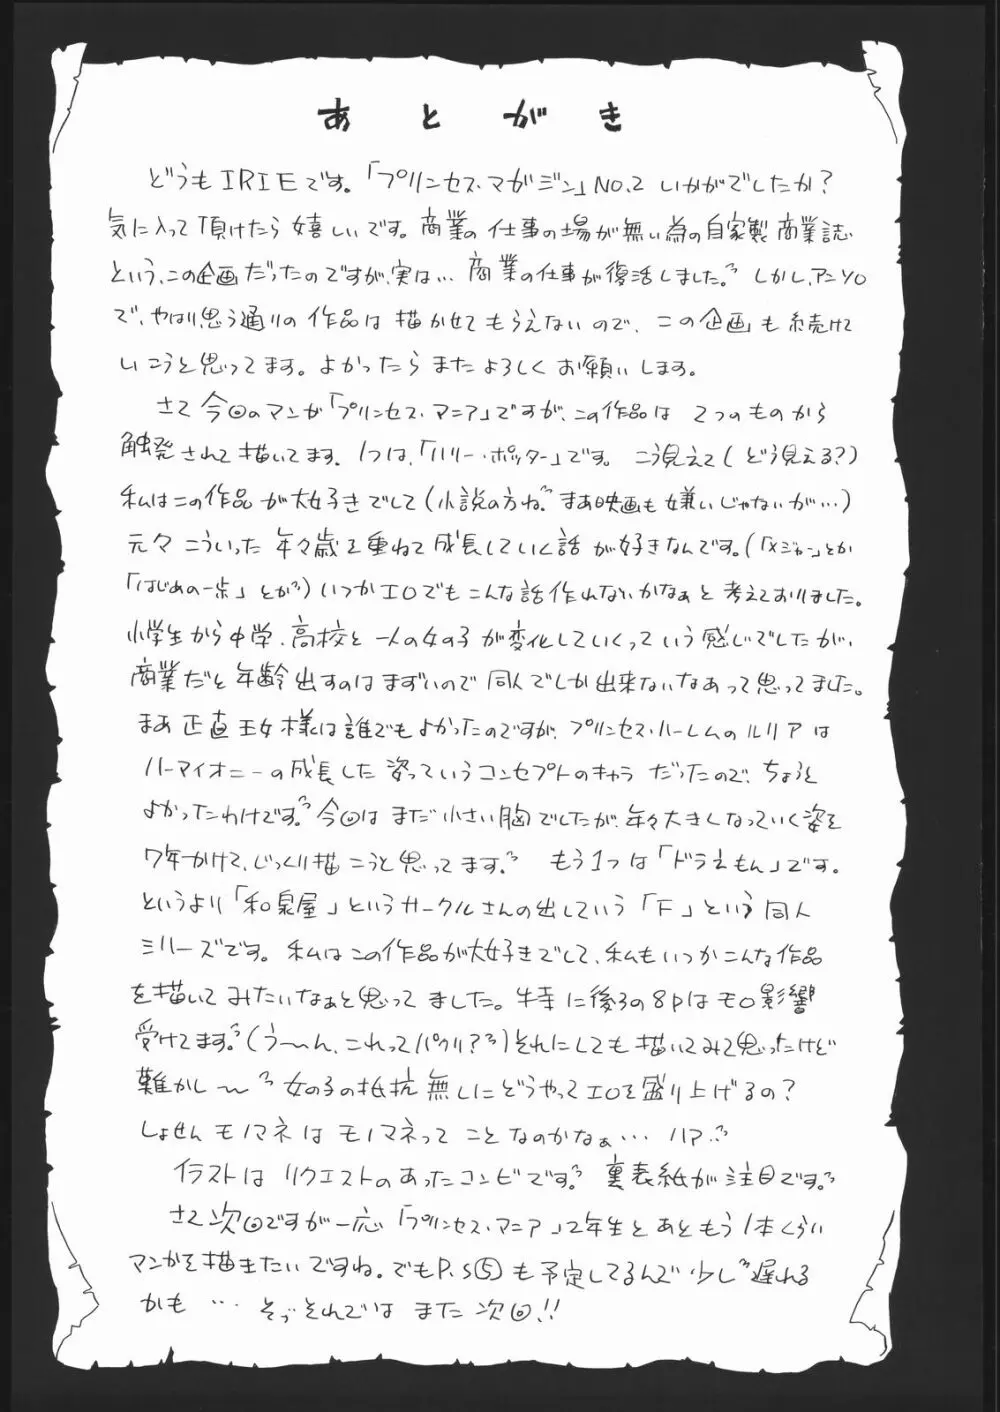 あとがき
どうもIRIEです。「プリンセス・マガジン」NO.2 いかがでしたか?
気に入って頂けたら嬉しいです。商業の仕事の場が無い為の自家製商業誌
という、この企画だったのですが、実は… 商業の仕事が復活しました。しかし、アンソロ
で、やはり思う通りの作品は描かせてもらえないので、この企画も続けて
いこうと思ってます。よかったらまたよろしくお願いします。
さて今回のマンガ「プリンセス・マニア」ですが、この作品は2つのものから
触発されて描いてます。1つは、「ハリー・ポッター」です。こう見えて(どう見える?)
私はこの作品が大好きでして(小説の方ね。まあ映画も嫌いじゃないが…)
元々こういった年々歳を重ねて成長していく話が好きなんです。(「メジャー」とか
「はじめの一歩」とか)いつかエロでもこんな話作れないかなぁと考えておりました。
小学生から中学、高校と一人の女の子が変化していくっていう感じでしたが、
商業だと年齢出すのはまずいので同人でしか出来ないなあって思ってました。
まあ正直王女様は誰でもよかったのですが、プリンセス・ハーレムのルリアは
ハーマイオニーの成長した姿っていうコンセプトのキャラだったので、ちょうど
よかったわけです。今回はまだ小さい胸でしたが、年々大きくなっていく姿を
7年かけて、じっくり描こうと思ってます。もう1つは「ドラえもん」です。
というより「和泉屋」というサークルさんの出している「F」という同人
シリーズです。私はこの作品が大好きでして、私もいつかこんな作品
を描いてみたいなぁと思ってました。特に後ろの8pはモロ影響
受けてます。(う〜ん、これってパクリ?)それにしても描いてみて思ったけど
難かし〜 女の子の抵抗無しにどうやってエロを盛り上げるの?
しょせんモノマネはモノマネってことなのかなぁ… ハァ…
イラストはリクエストのあったコンビです。裏表紙が注目です。
さて次回ですが一応「プリンセス・マニア」2年生とあともう1本くらい
マンガを描きたいですね。でもP.S⑤も予定してるんで少し遅れる
かも… それではまた次回!!